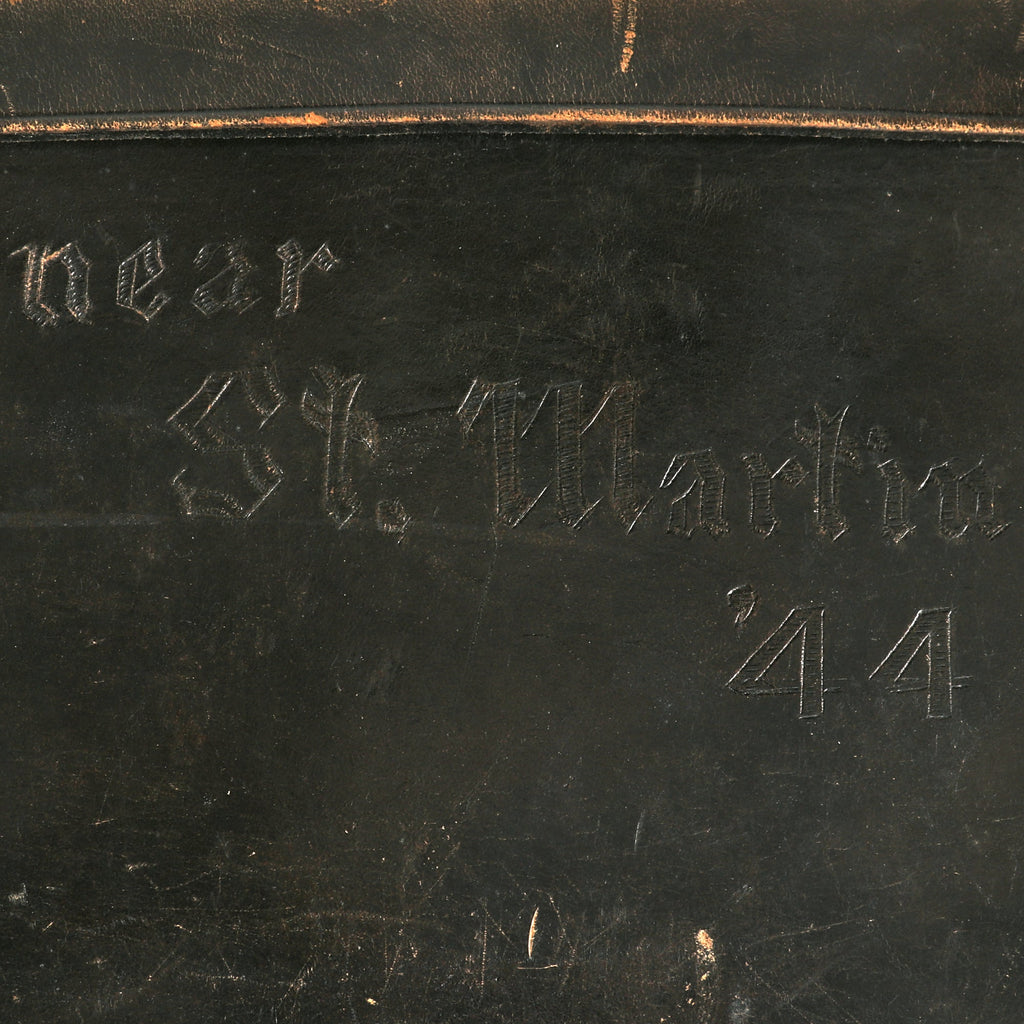 near
St. Martin
'44